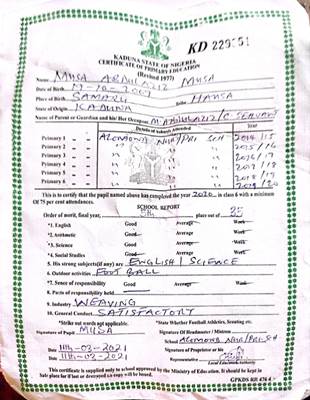 KD 229551
KADUNA STATE OF NIGERIA
CERTIFICATE OF PRIMARY EDUCATION
(Revised 1977)
Name MUSA ABDUL AZIZ MUSA
Date of Birth 17-10-2009
Place of Birth SAMARU Tribe HAUSA
State of Origin KADUNA
Name of Parent or Guardian and his/her Occupation M. ABDULAZIZ/C. SERVANT
Details of Schools Attended Year
Primary 1 NUR/PRI SCH 2014/15
Primary 2 " " " 2015/16
Primary 3 " " " 2016/17
Primary 4 " " " 2017/18
Primary 5 " " " 2018/19
Primary 6 " " " 2019/20
This is to certify that the pupil named above has completed the year 2020 in class 6 with minimum
Of 75 per cent attendances.
SCHOOL REPORT
Order of merit, final year, 5th place out of 35
*1. English Good Average Weak
*2. Arithmetic Good Average Weak
*3. Science Good Average Weak
*4. Social Studies Good Average Weak
5. His strong subject(s) if any) are ENGLISH / SCIENCE
6. Outdoor activities FOOT BALL
*7. Sense of responsibility Good Average Weak
8. Parts of responsibility held
9. Industry WEAVING
10. General Conduct SATISFACTORY
*Strike out words not applicable. *State Whether Football, Athletics, Scouting etc.
Signature of Pupil MUSA Signature Of Headmaster / Mistress
School NUR/PRI SCH
Date 11th-03-2021 Signature of Proprietor or his
Representative
Date 11th-03-2021 Local Education Authority
This certificate is supplied only to school approved by the Ministry of Education. It should be kept in
Safe place for if lost or destroyed no copy will be issued.